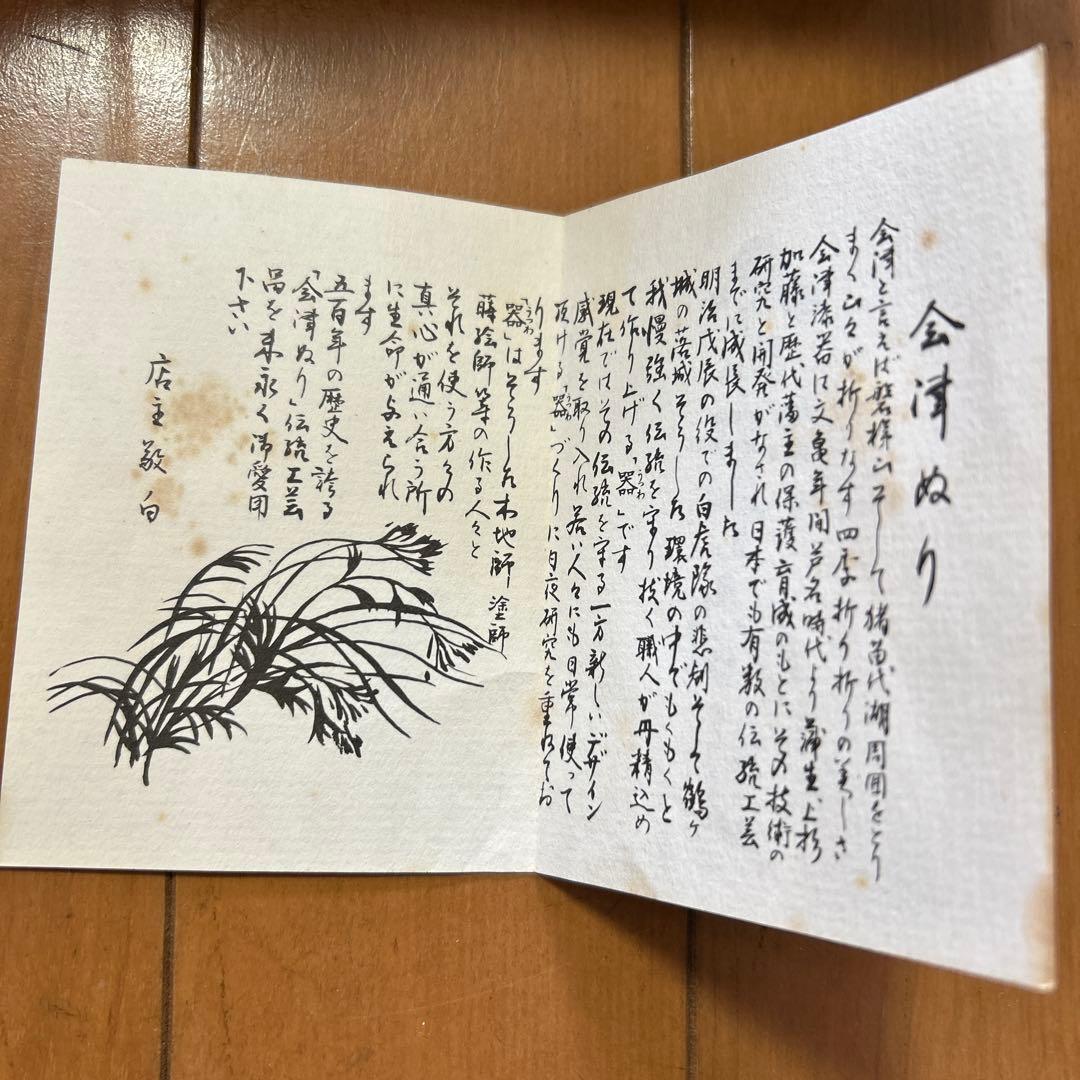 会津ぬり
会津と言えば磐梯山そして猪苗代湖周囲をとり
まく山々が折りなす四季折り折りの美しさ
会津漆器は文亀年間芦名時代より蒲生、上杉
加藤と歴代藩主の保護育成のもとにその技術の
研究と開発がなされ日本でも有数の伝統工芸
までに成長しました
明治戊辰の役での白虎隊の悲劇そして鶴ヶ
城の落城そうした環境の中でもくもくと
我慢強く伝統を守り抜く職人が丹精込め
て作り上げる「器」です
うつわ
現在ではその伝統を守る一方新しいデザイン
感覚を取り入れ若い人々にも日常使って
頂ける「器」づくりに日夜研究を重ねてお
うつわ
ります
「器」はそうした木地師 塗師
うつわ
蒔絵師等の作る人々と
それを使う方々の
真心が通い合う所
に生命が与えられ
ます
五百年の歴史を誇る
「会津ぬり」伝統工芸
品を末永く御愛用
下さい
店主敬白